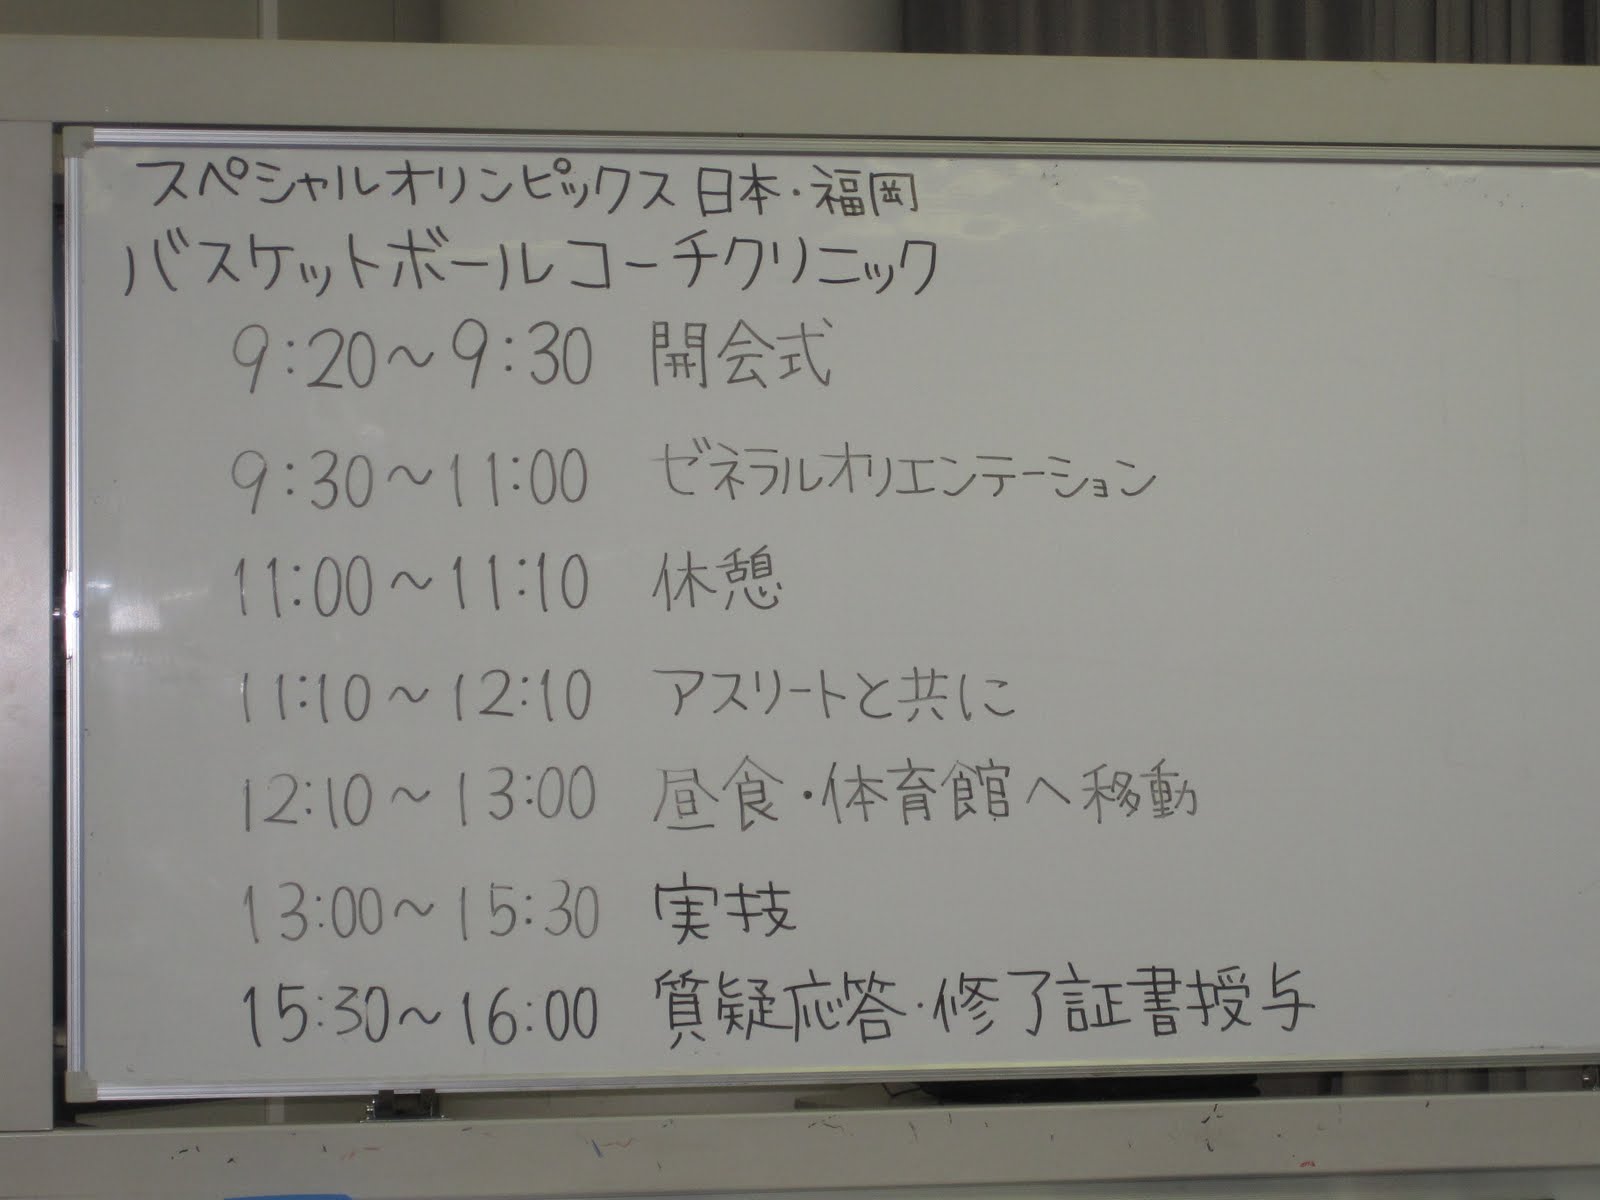 スペシャルオリンピックス日本・福岡
バスケットボールコーチクリニック
9:20～9:30 開会式
9:30～11:00 ゼネラルオリエンテーション
11:00～11:10 休憩
11:10～12:10 アスリートと共に
12:10～13:00 昼食・体育館へ移動
13:00～15:30 実技
15:30～16:00 質疑応答・修了証書授与